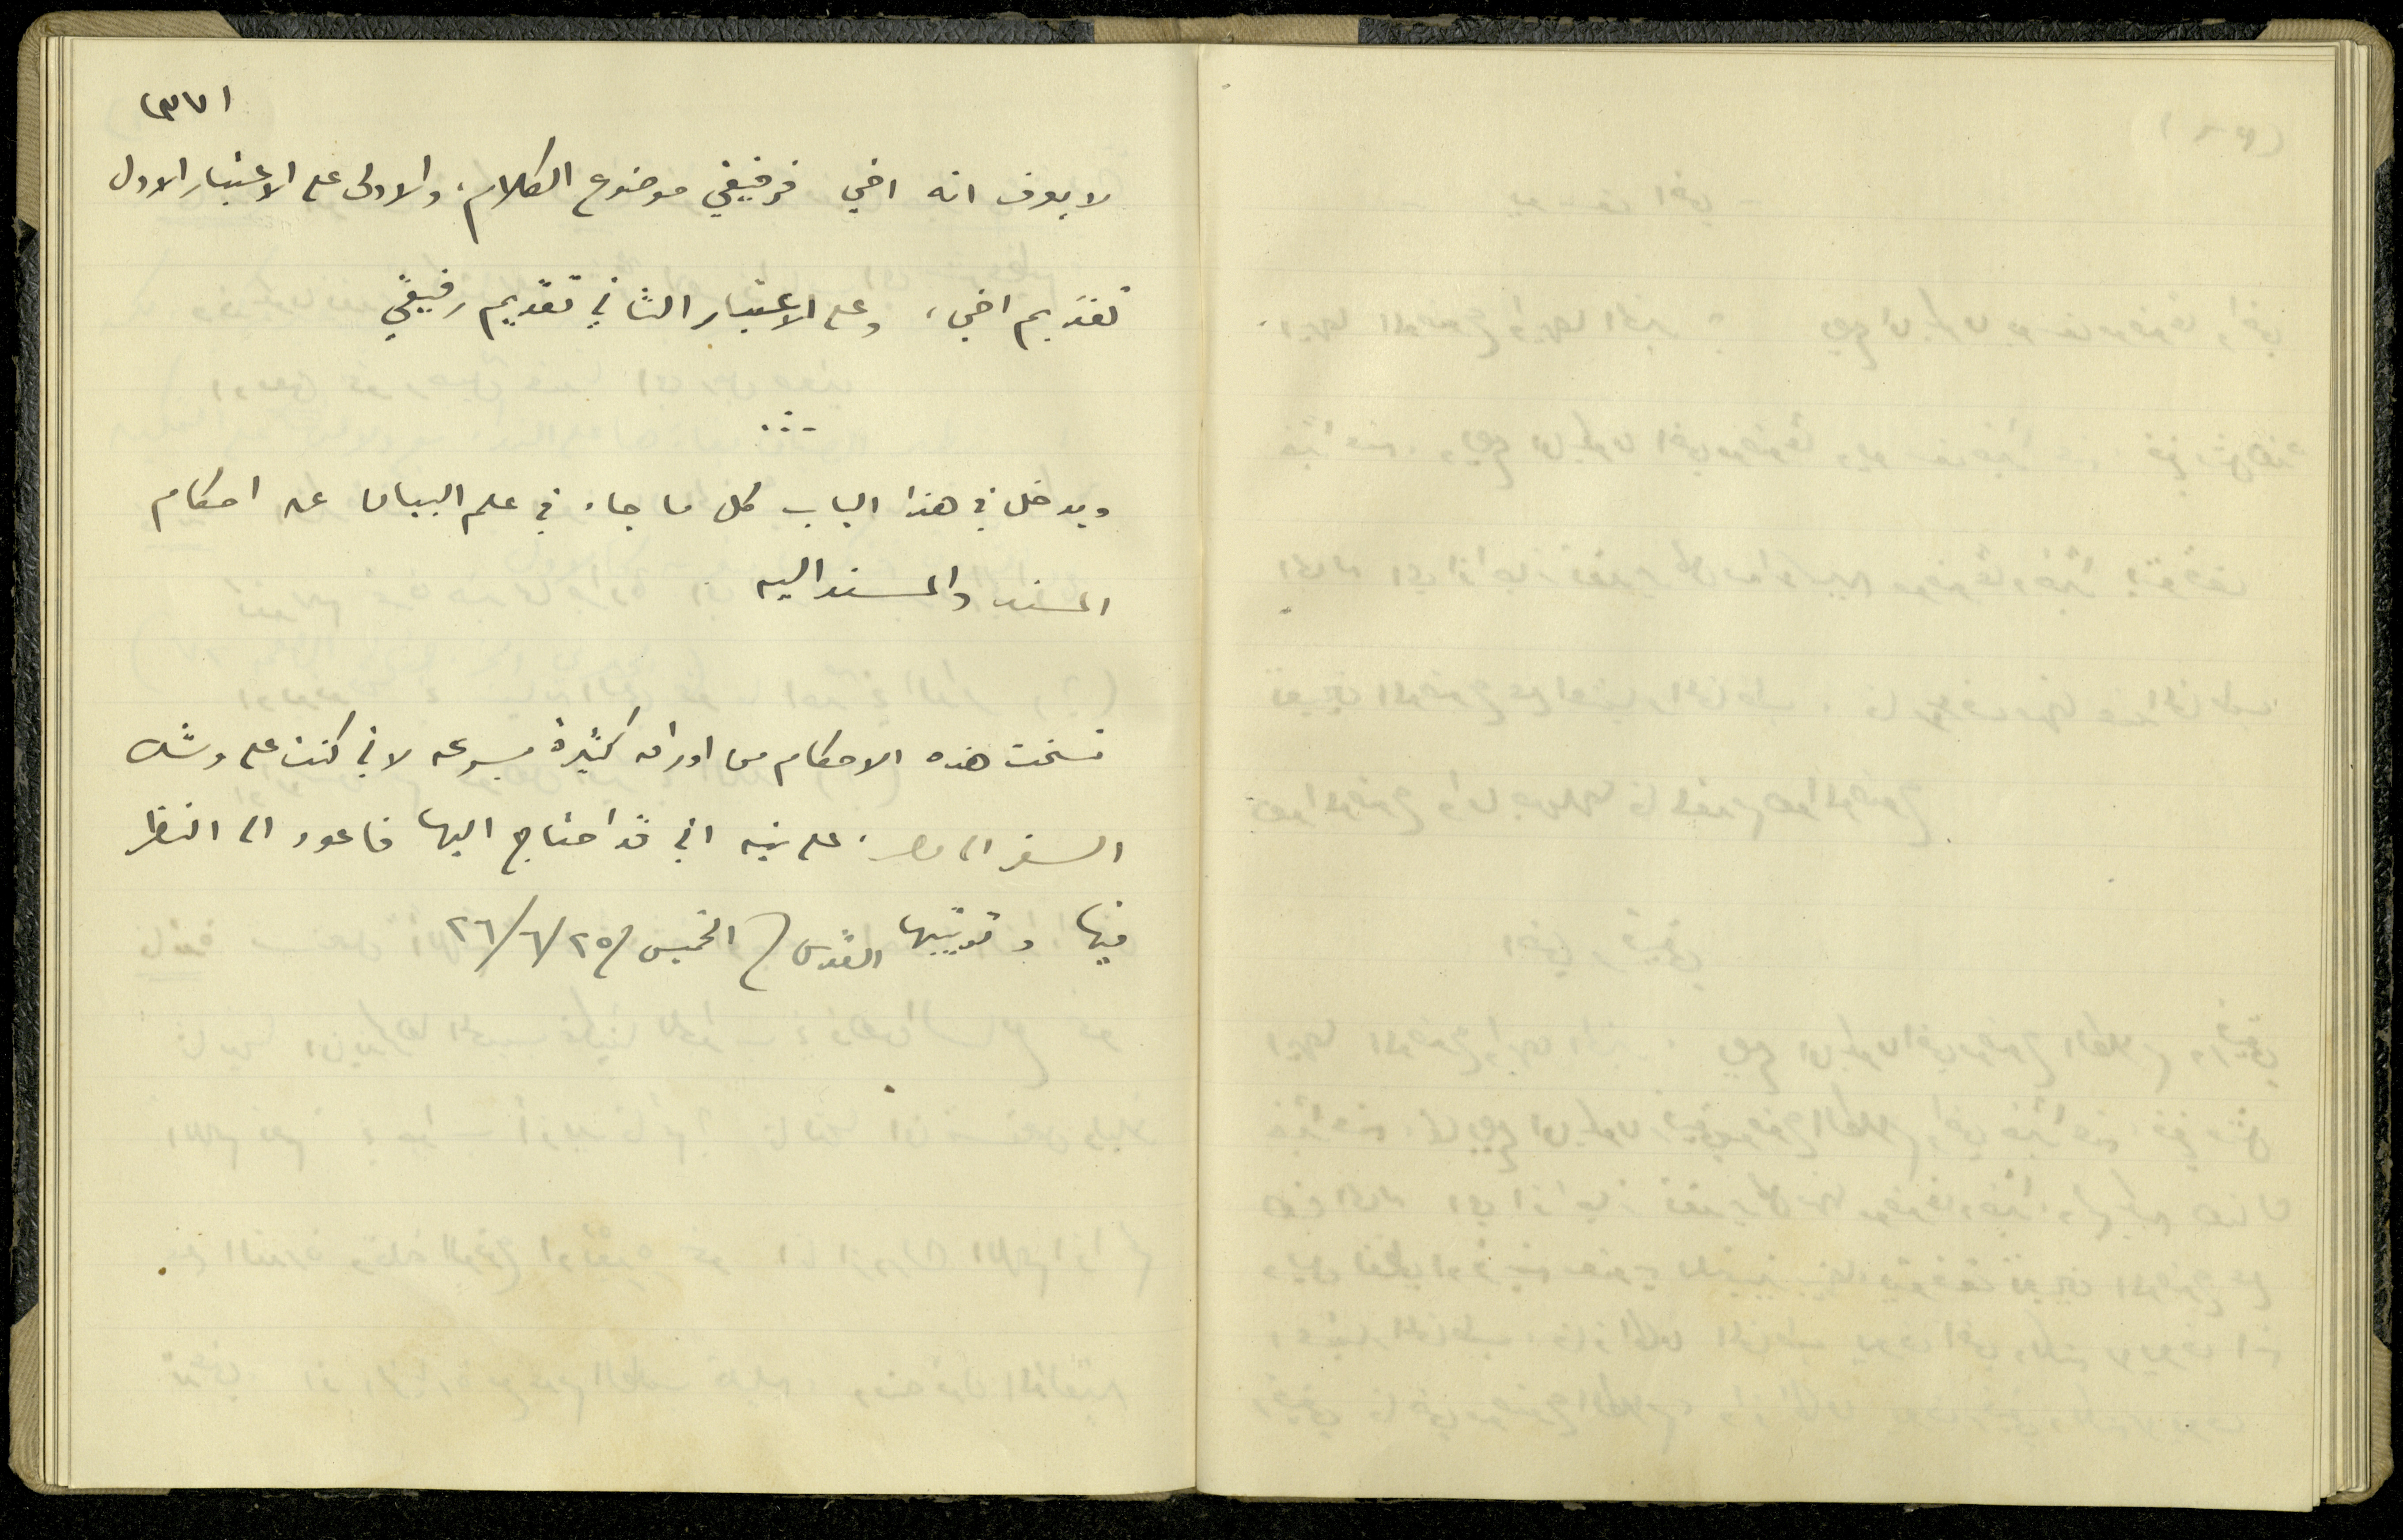 (٣٧١
لا يعرف انه اخي فرفيقي موضوع الكلام، والاولى على الاعتبار الاول
تقديم اخي، وعلى الاعتبار الثاني تقديم رفيقي
ويدخل في هذا الباب كل ما جاء في علم البيان عن احكام
المسند والمسند اليه
نسخت هذه الاحكام من اوراق كثيرة بسرعه لاني كنت على وشك
السفر الى مصر، على نيه اني قد احتاج اليها فاعود الى النظر
فيها وترتيبها القدس / الخميس / ٢٥/ ٦/ ٢٦